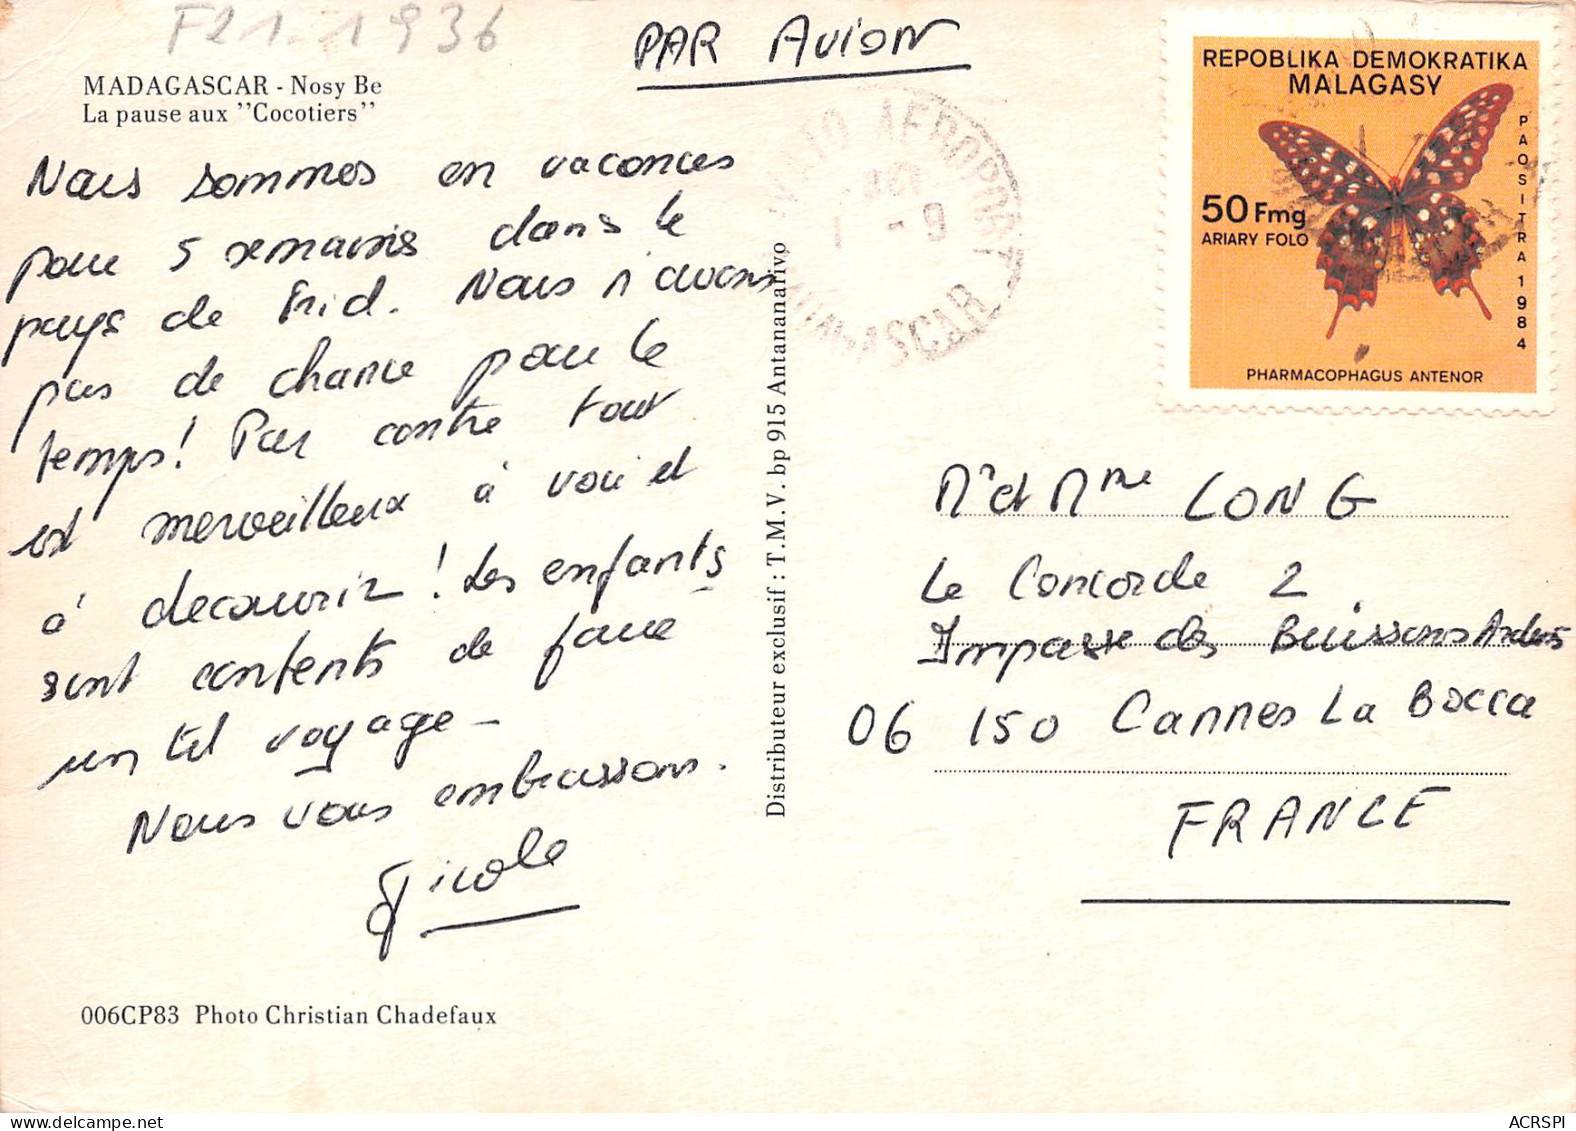 F21.1936
PAR AVION
MADAGASCAR - Nosy Be
La pause aux "Cocotiers"
Nous sommes en vacances
pour 5 semaines dans le
pays de Frid. Nous n'avons
pas de chance pour le
temps! Par contre tout
est merveilleux à voir et
à decouvrir! Les enfants
sont contents de faire
un tel voyage -
Nous vous embrassons.
Nicole
006CP83 Photo Christian Chadefaux
Distributeur exclusif : T.M.V. bp 915 Antananarivo
AEROPORT
1 - 9
REPOBLIKA DEMOKRATIKA
MALAGASY
50 Fmg
ARIARY FOLO
PAOSITRA 1984
PHARMACOPHAGUS ANTENOR
Mr et Mme LONG
Le Concorde 2
Impasse des Buissons Ardents
06 150 Cannes La Bocca
FRANCE
ACRSPI